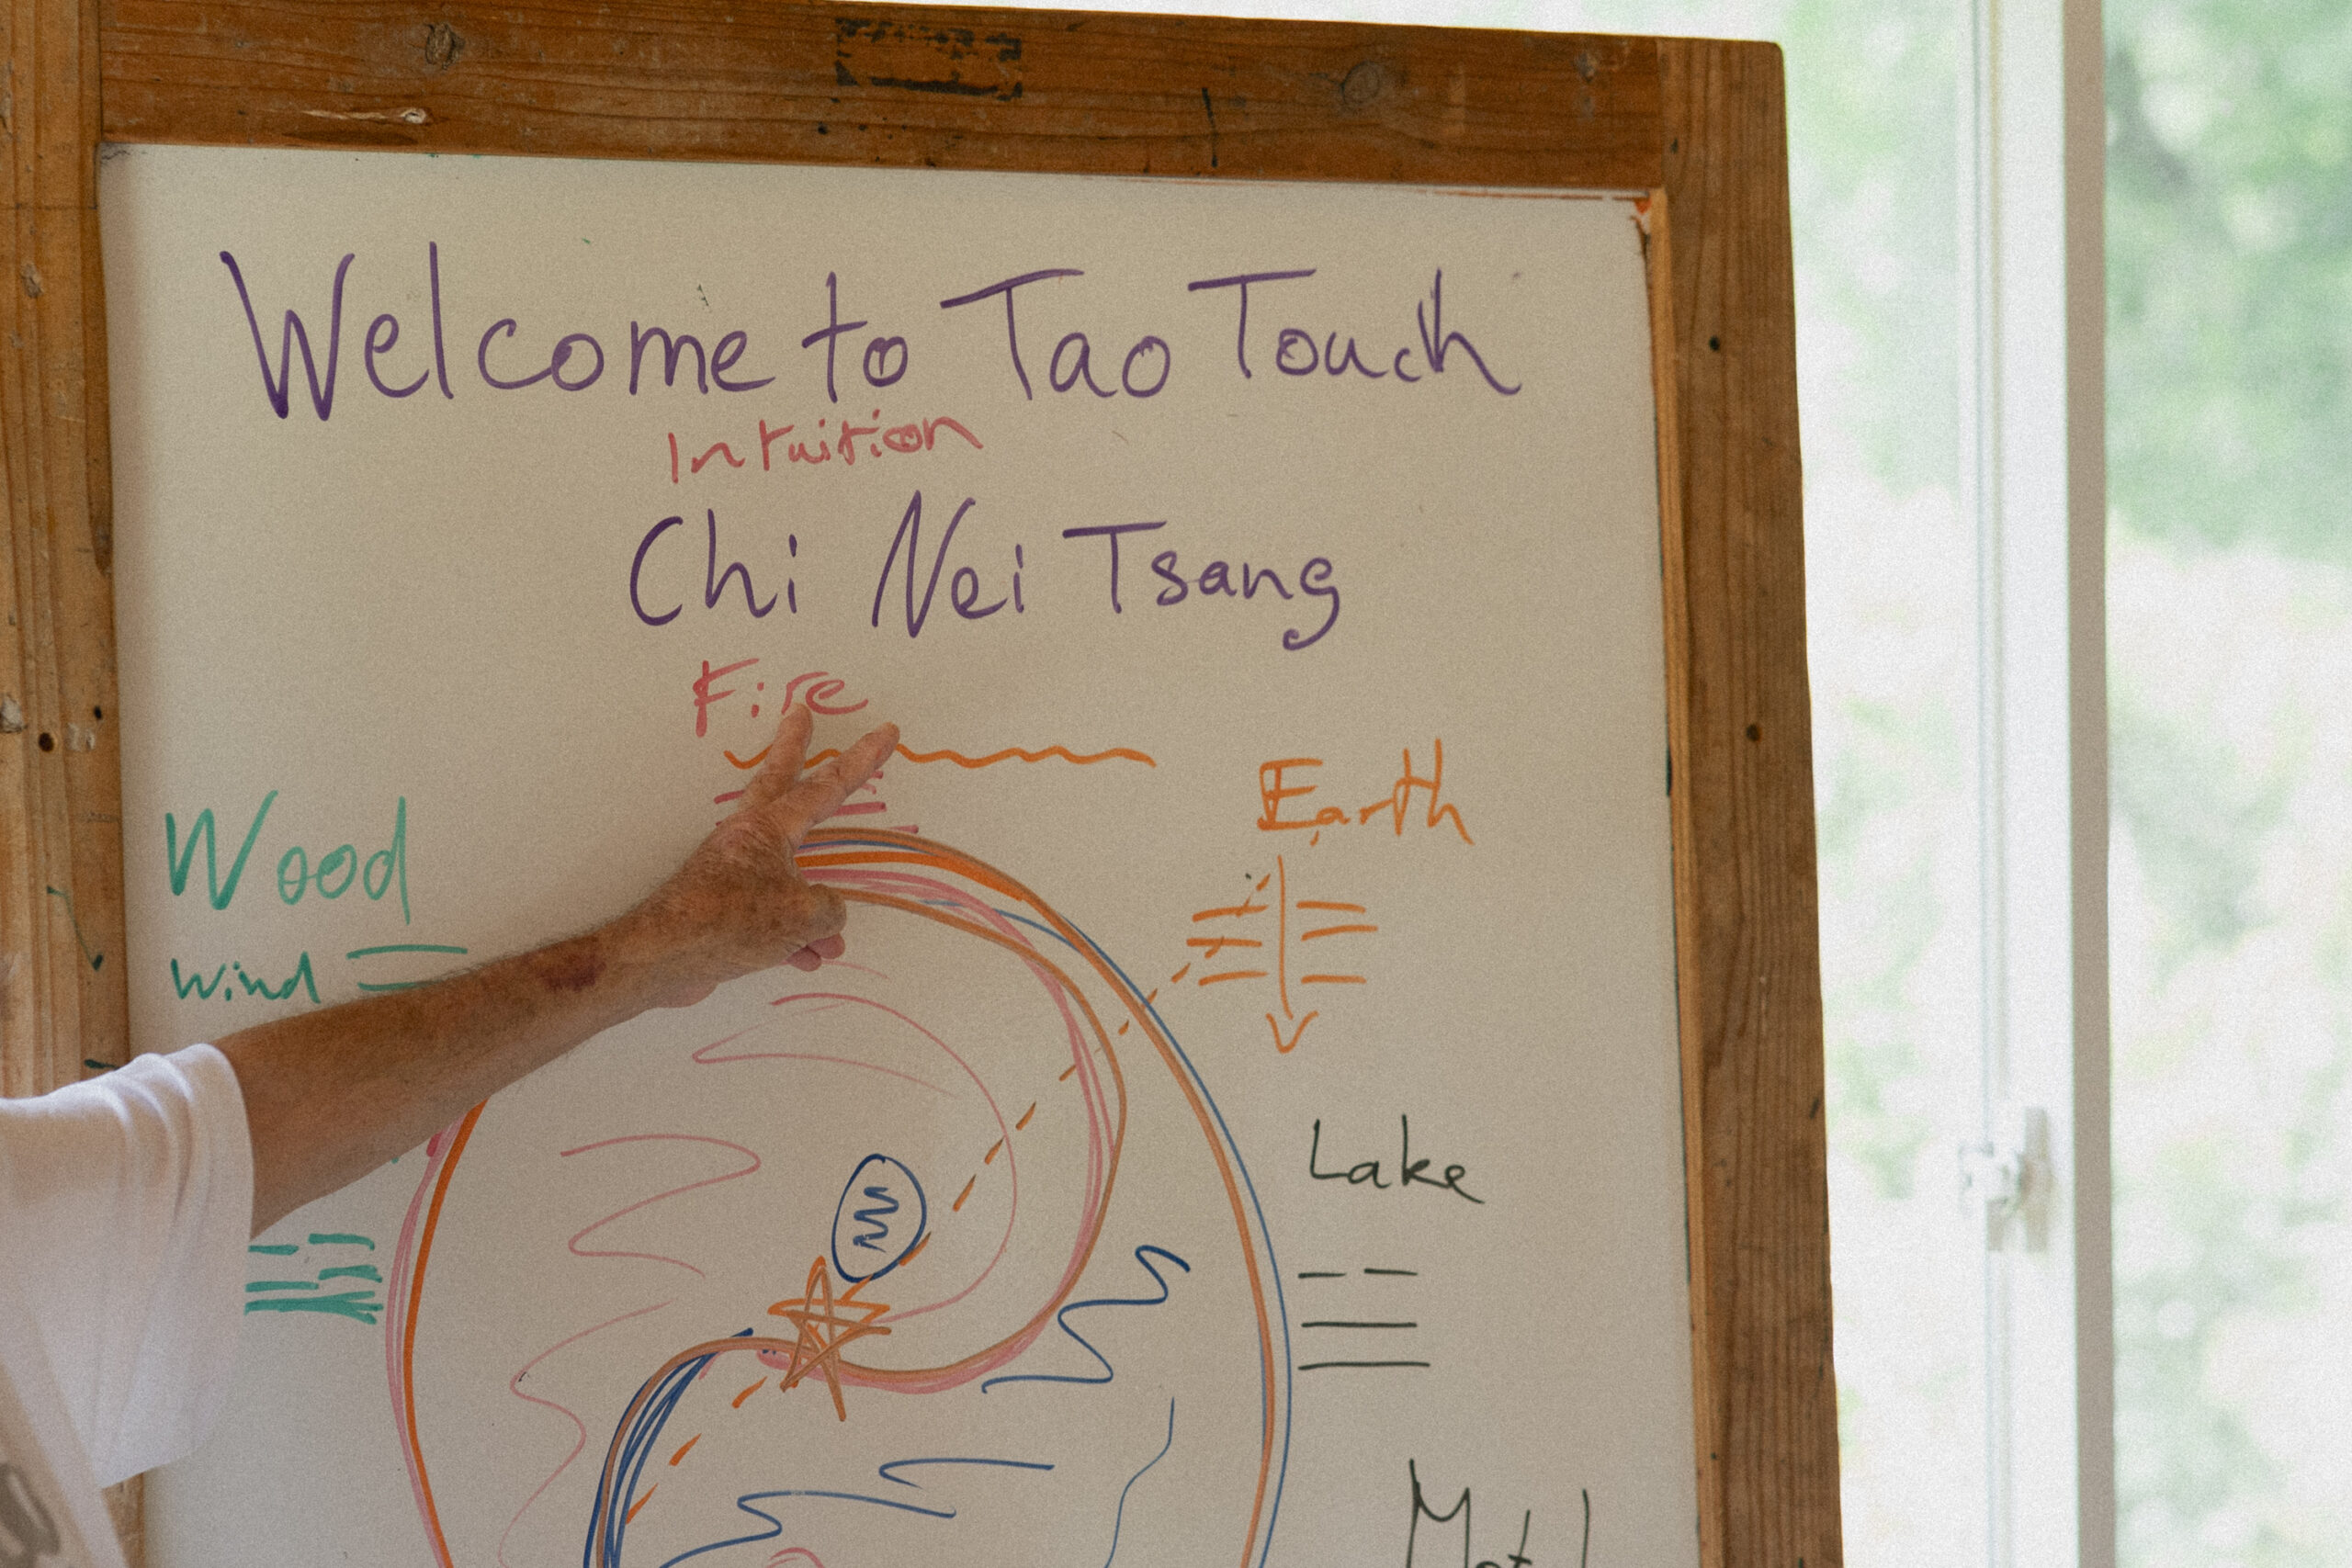 Welcome to Tao Touch
Intuition
Chi Nei Tsang
Fire
Earth
Wood
Wind
Lake